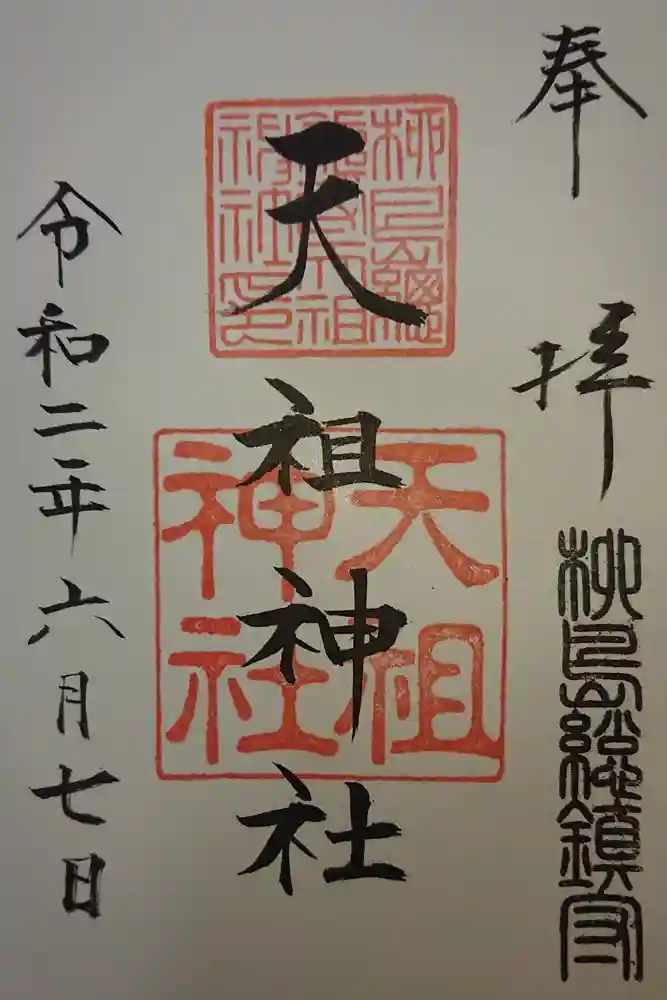 奉拝
柳島総鎮守
天祖神社
令和二年六月七日
柳島總
鎮守天祖
神社印
天祖
神社